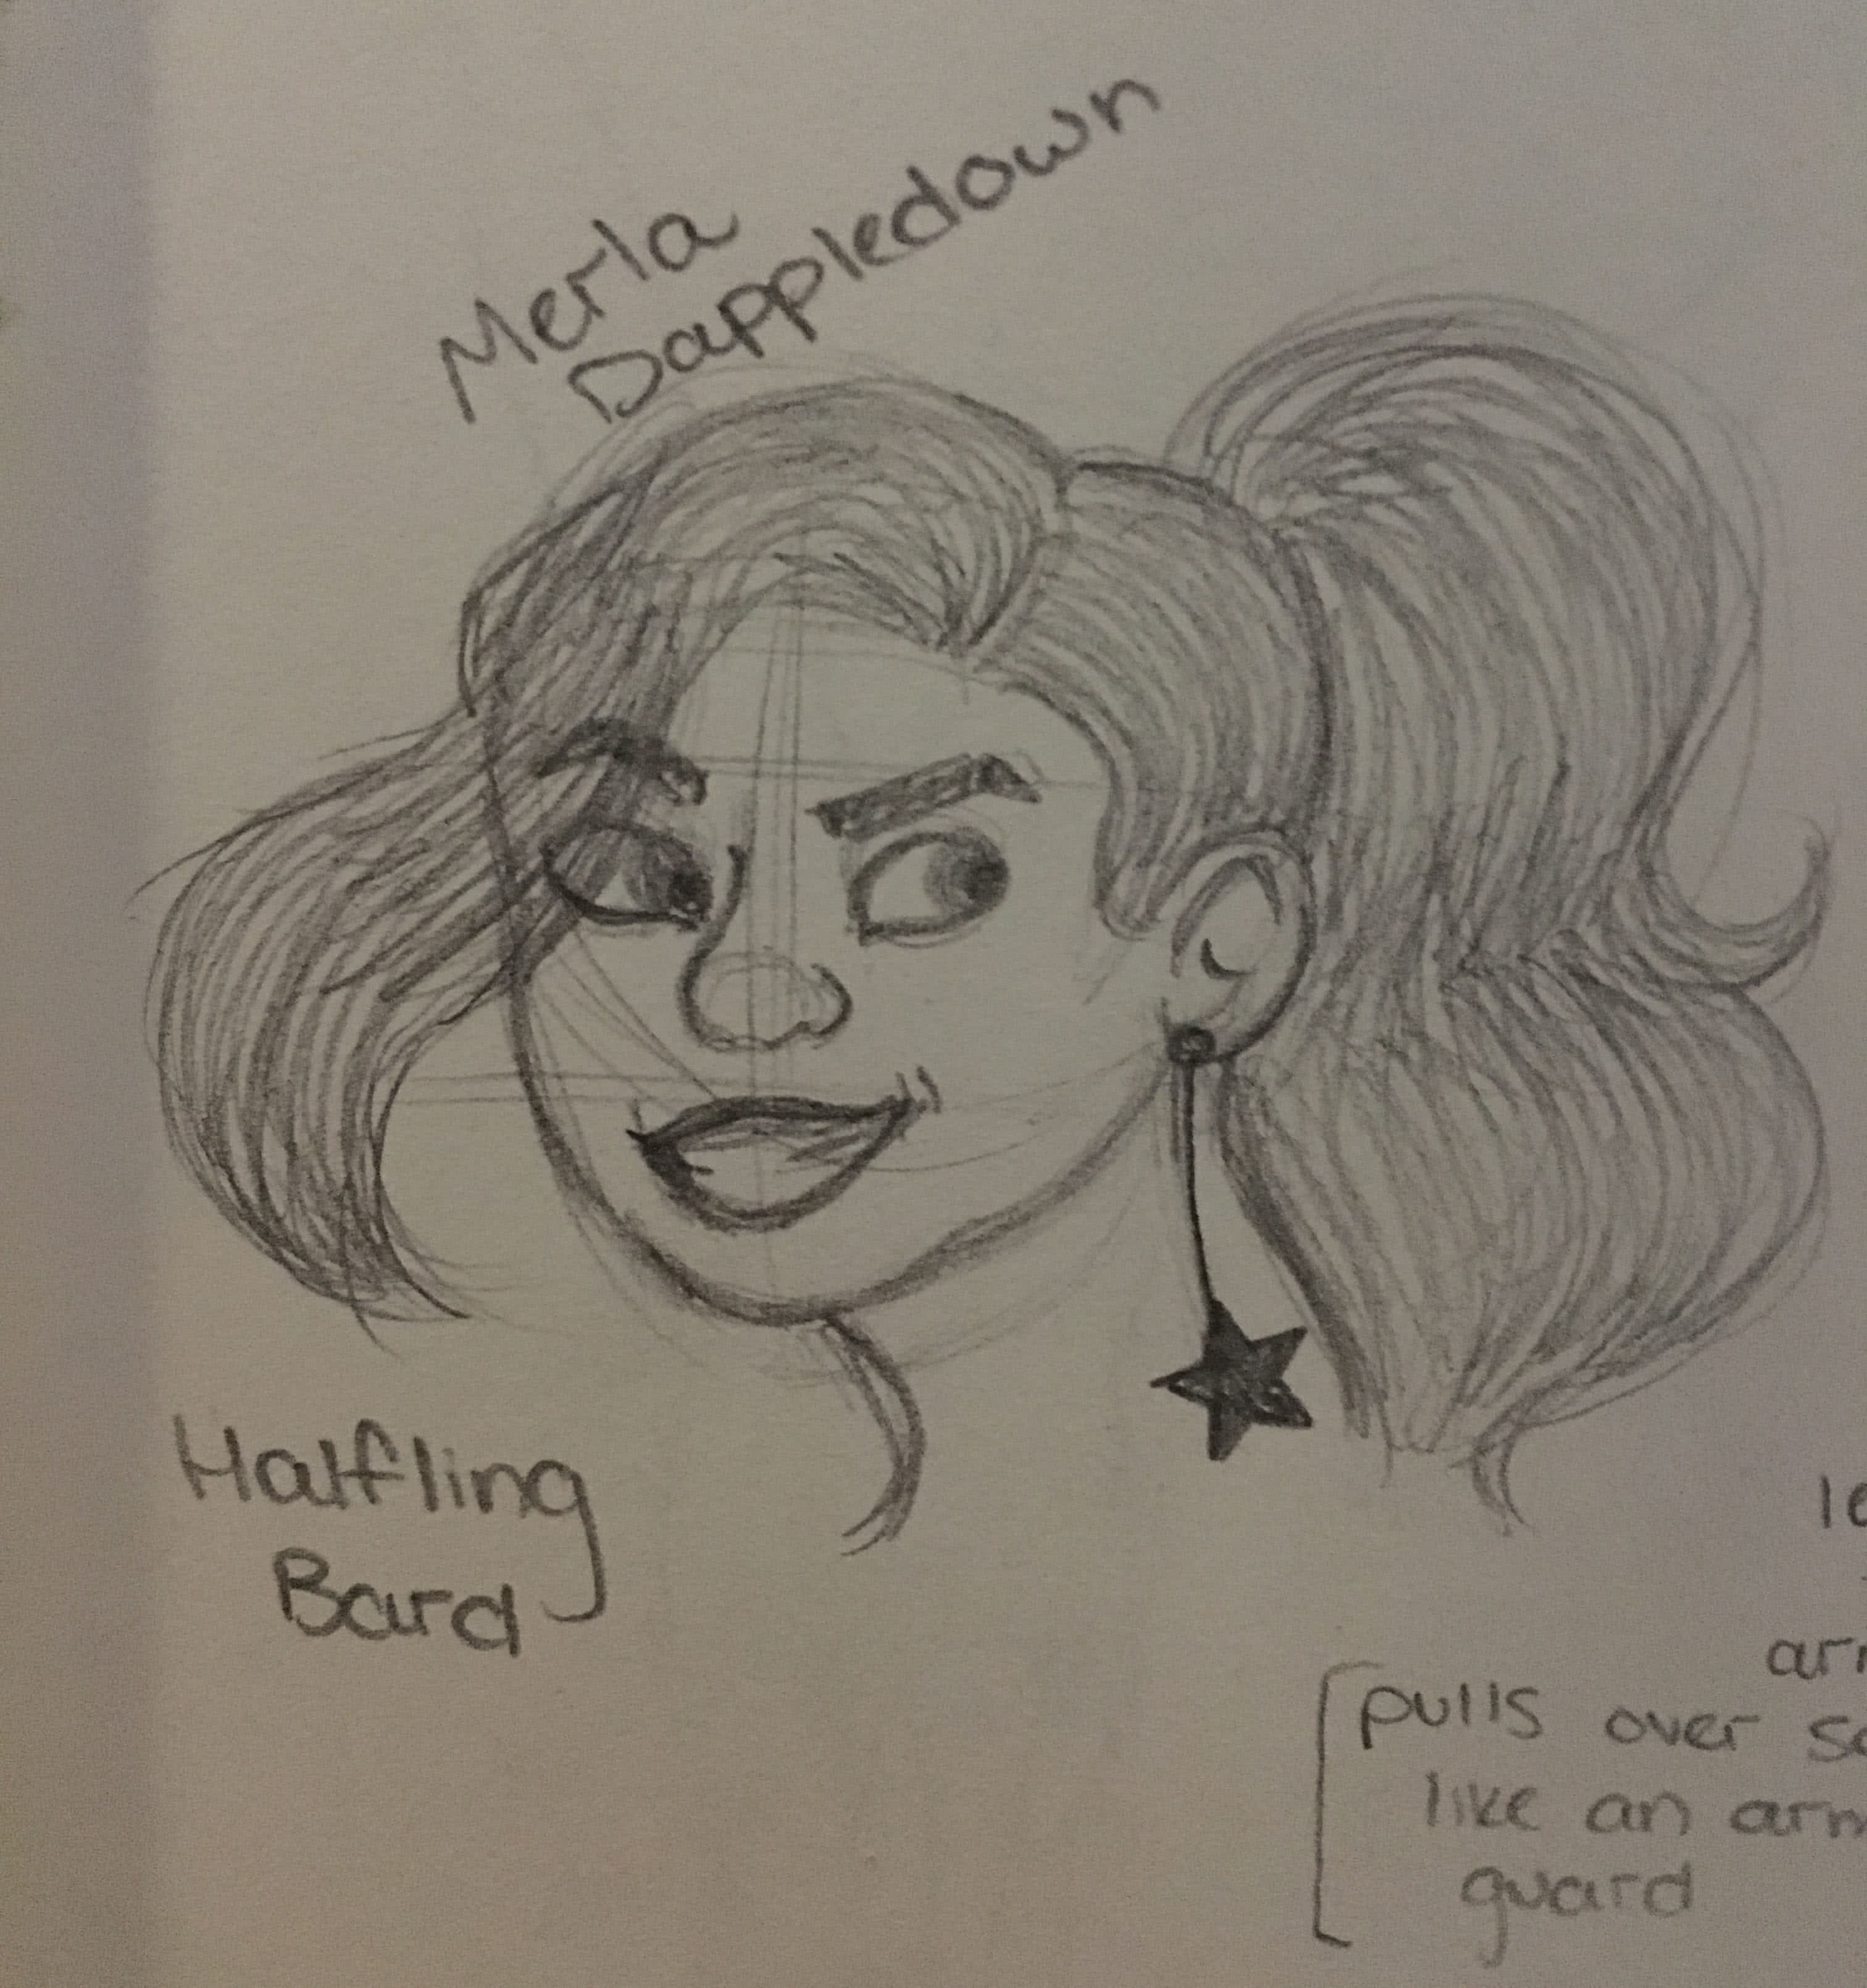 Merla
Dappledown
Halfling
Bard
pulls over
like an
guard